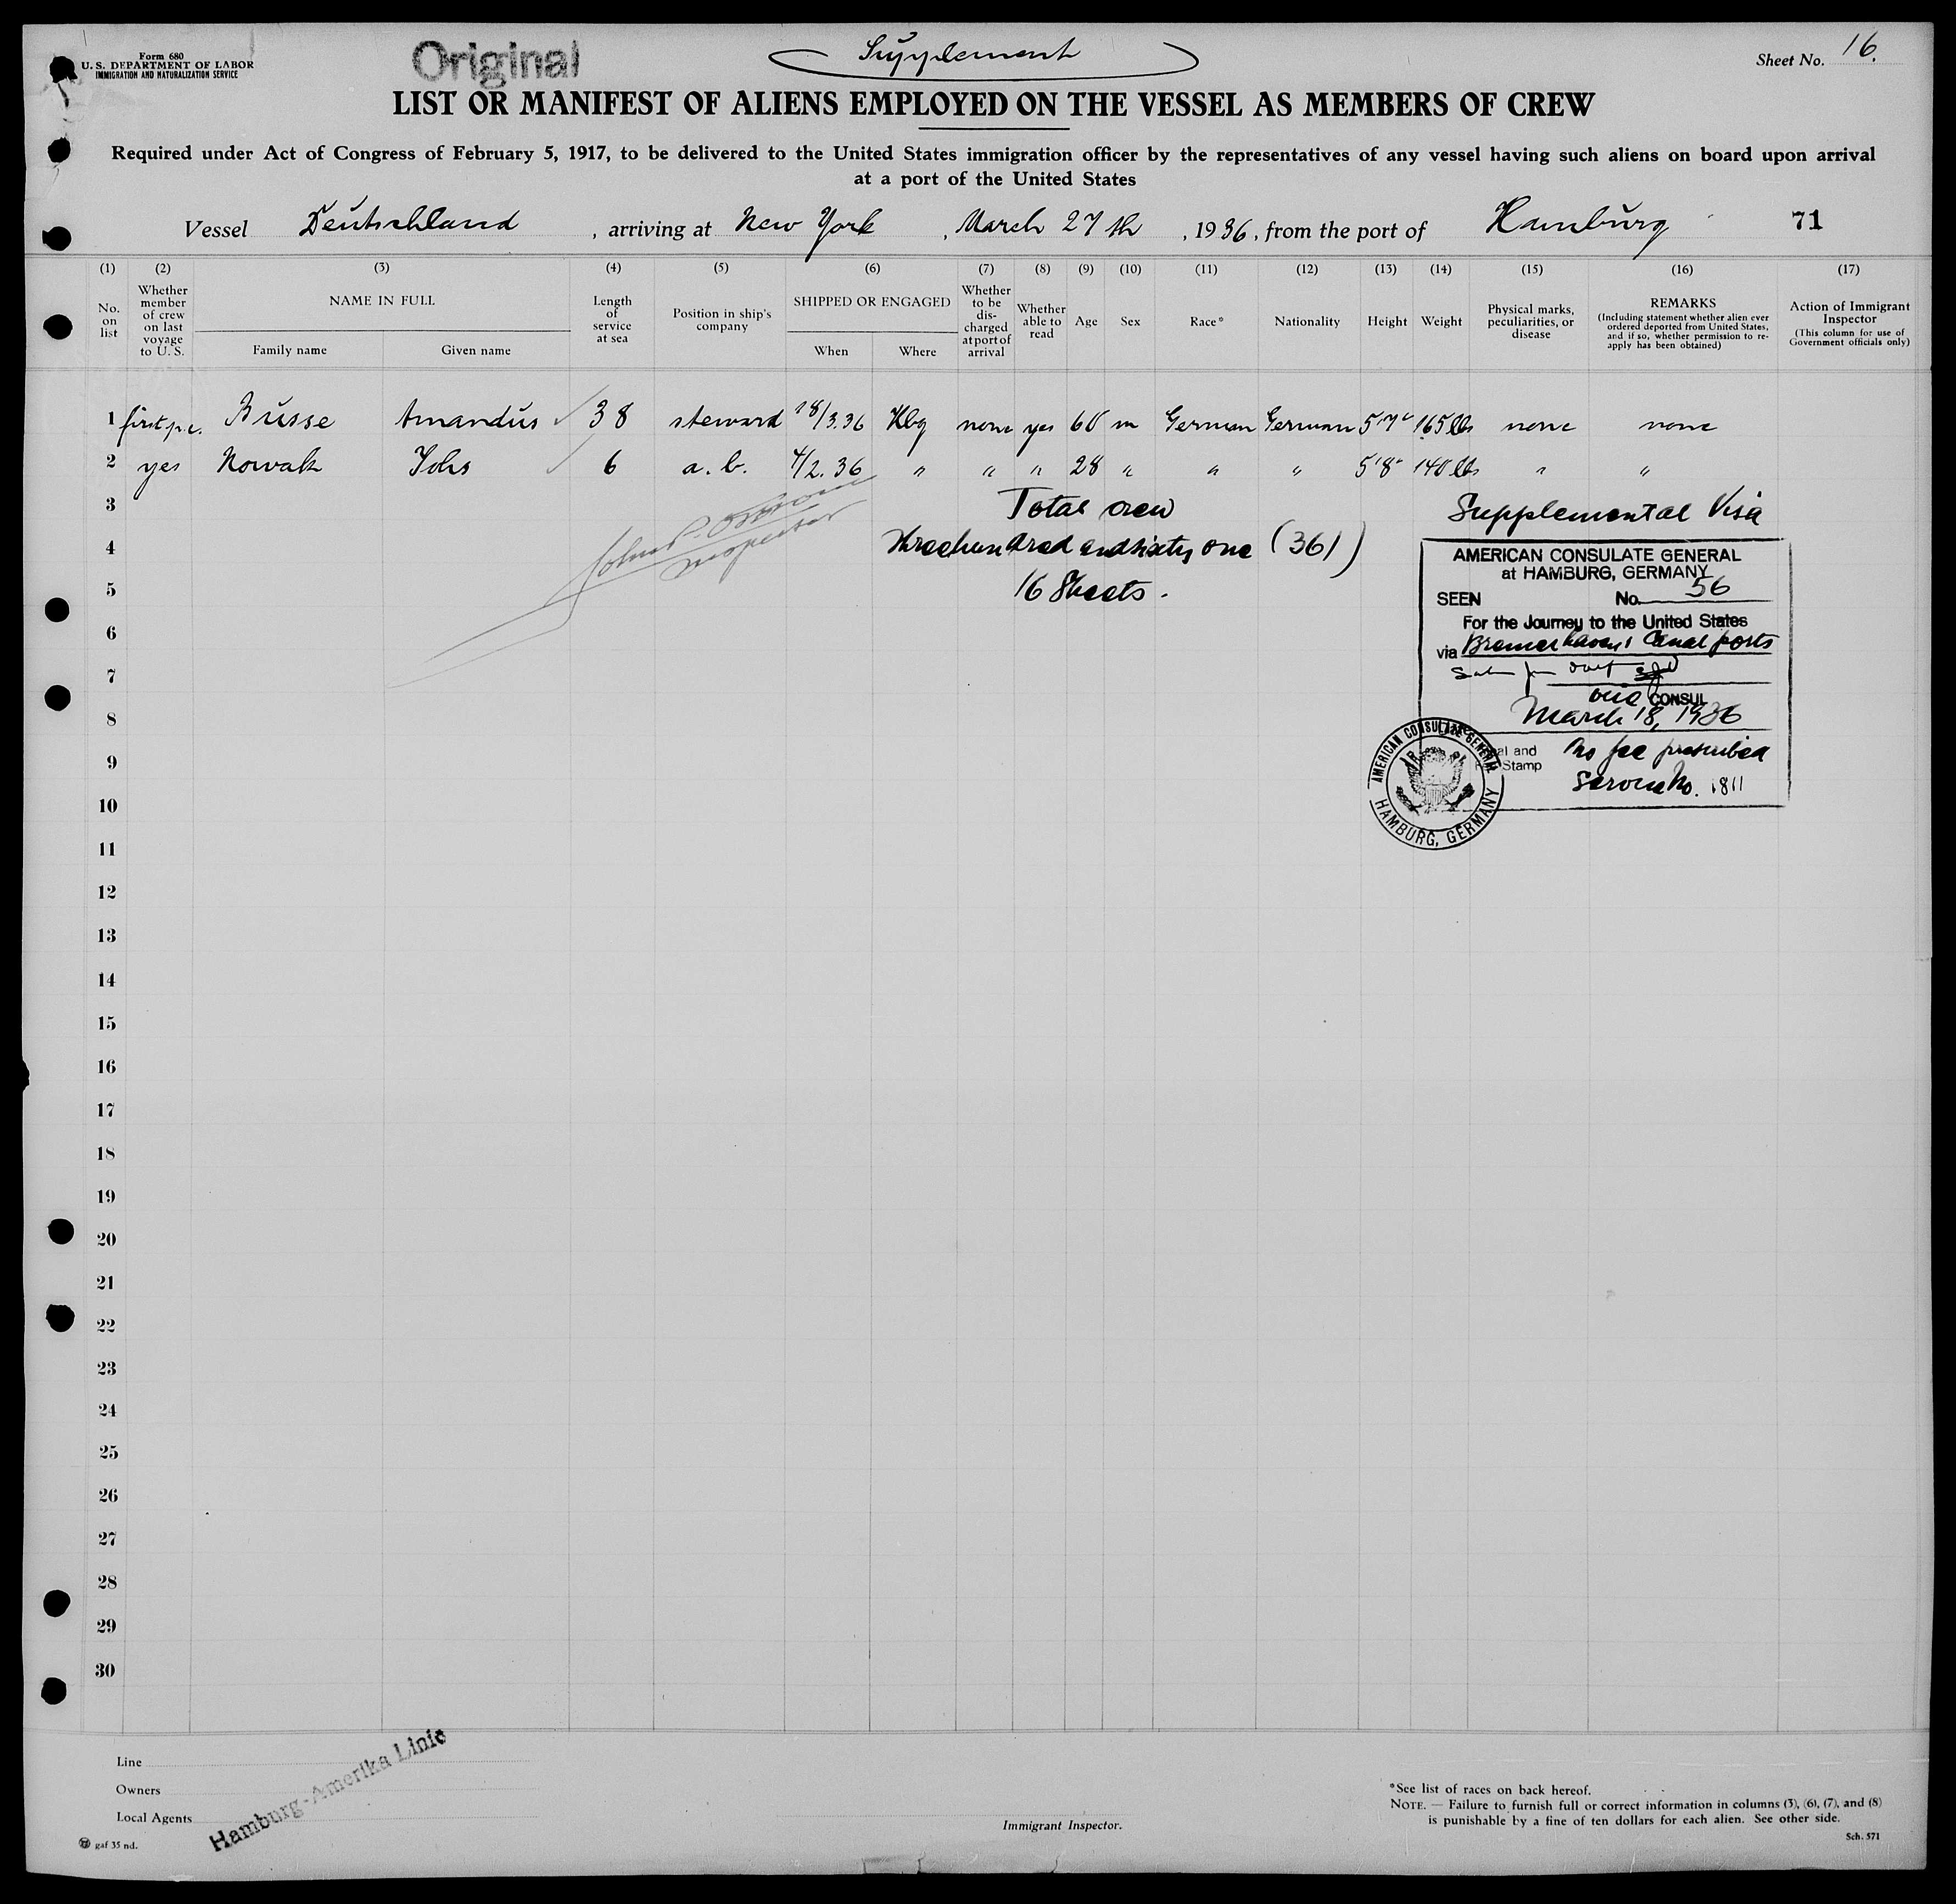 Form 680
U. S. DEPARTMENT OF LABOR
IMMIGRATION AND NATURALIZATION SERVICE
Original
Supplement
Sheet No. 16.
LIST OR MANIFEST OF ALIENS EMPLOYED ON THE VESSEL AS MEMBERS OF CREW
Required under Act of Congress of February 5, 1917, to be delivered to the United States immigration officer by the representatives of any vessel having such aliens on board upon arrival
at a port of the United States
Vessel Deutschland , arriving at New York , March 27th , 1936 , from the port of Hamburg 71
(1) (2) (3) (4) (5) (6) (7) (8) (9) (10) (11) (12) (13) (14) (15) (16) (17)
No. on list
Whether member of crew on last voyage to U. S.
NAME IN FULL
Family name
Given name
Length of service at sea
Position in ship's company
SHIPPED OR ENGAGED
When
Where
Whether to be dis-charged at port of arrival
Whether able to read
Age
Sex
Race*
Nationality
Height
Weight
Physical marks, peculiarities, or disease
REMARKS
(Including statement whether alien ever ordered deported from United States, and if so, whether permission to re-apply has been obtained)
Action of Immigrant Inspector
(This column for use of Government officials only)
1 Büsse Amandus 38 steward 18/3.36 Hbg none yes 60 m German German 5'7" 165 lbs none none
2 yes Nowak Johs 6 a. b. 4/2. 36 " " " 28 " " " 5'8" 140 lbs " "
3 Total crew
4 Threehundred and sixty one (361)
5 16 Sheets.
Inspector
Supplemental Visa
AMERICAN CONSULATE GENERAL
at HAMBURG, GERMANY
SEEN No. 56
For the Journey to the United States
via Bremerhaven & Canal ports
CONSUL
March 18, 1936
No fee prescribed
Service No. 1811
Stamp
AMERICAN CONSULATE GENERAL
HAMBURG, GERMANY
6
7
8
9
10
11
12
13
14
15
16
17
18
19
20
21
22
23
24
25
26
27
28
29
30
Line
Owners
Local Agents
Hamburg-Amerika Linie
gaf 35 nd.
Immigrant Inspector.
*See list of races on back hereof.
NOTE. — Failure to furnish full or correct information in columns (3), (6), (7), and (8)
is punishable by a fine of ten dollars for each alien. See other side.
Sch. 571